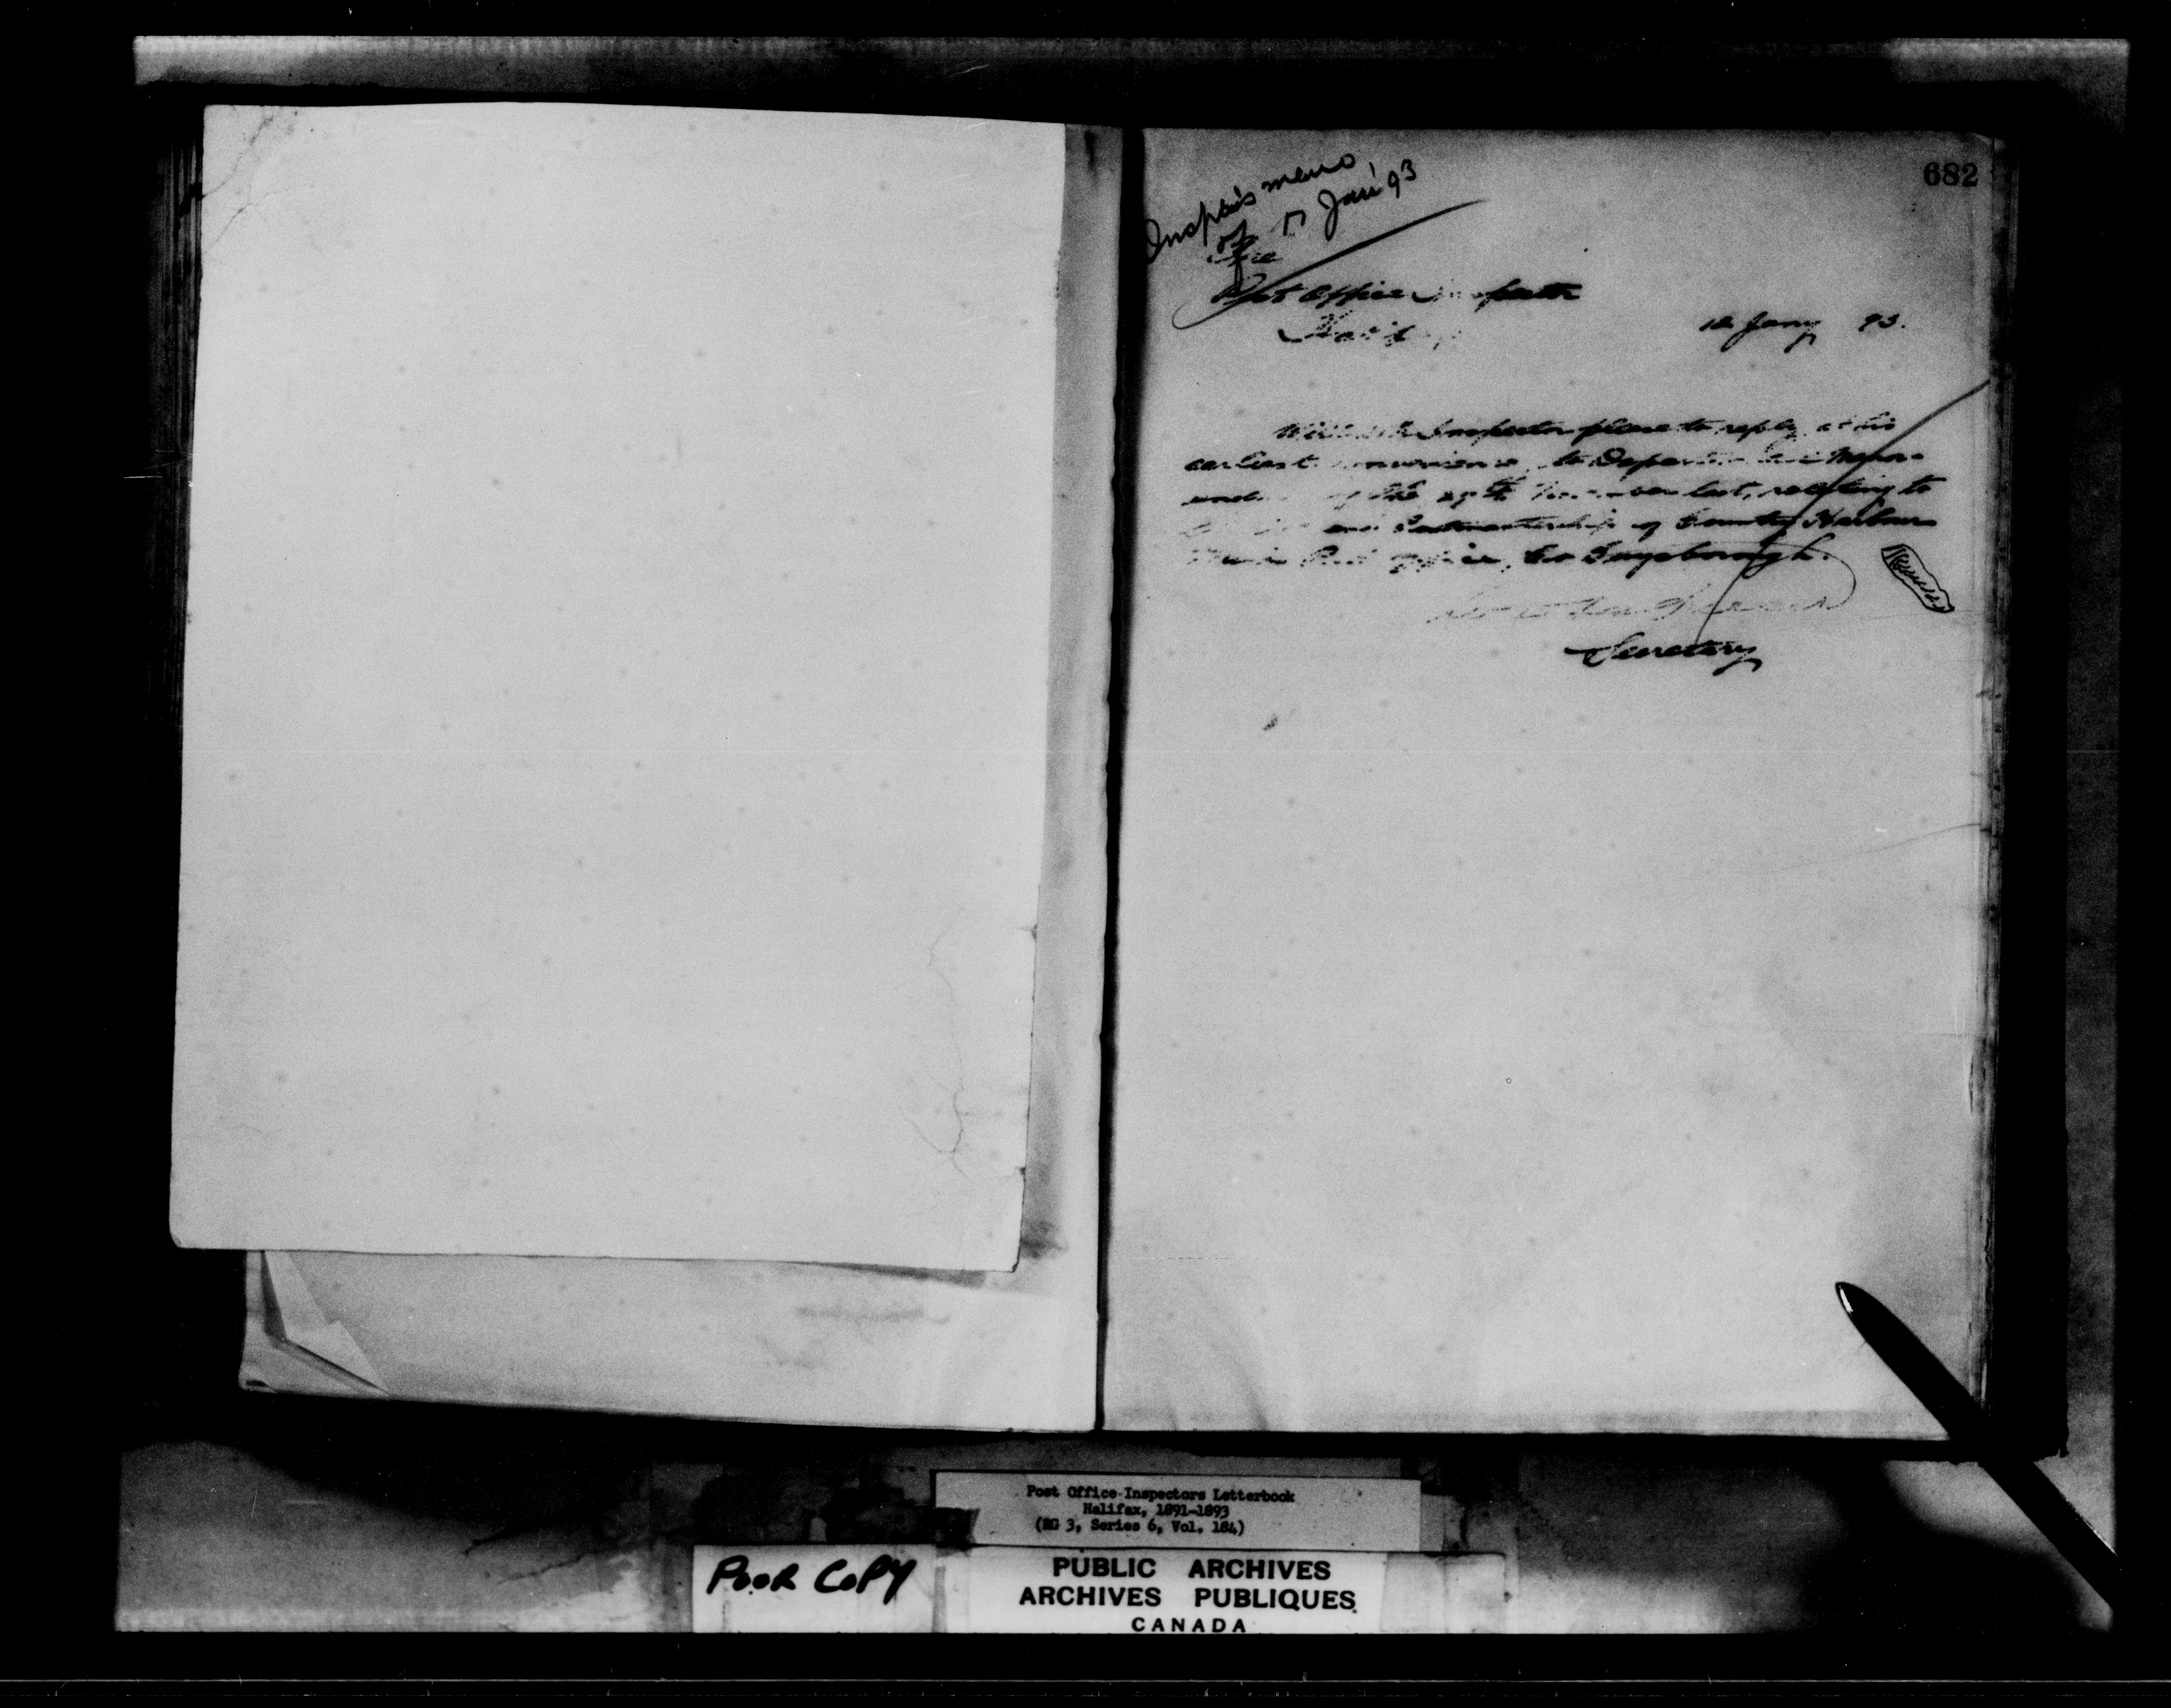 682
Insptr's memo
of 17 Jan'y 93
The
Post Office Inspector
Halifax
12 Jany 93.
Will the Inspector please to reply, at his
earliest convenience, to Departmental Memor-
andum of the 29th November last, relating to
and Postmastership of Country Harbour
Post Office, Co Guysborough.
Secretary
Post Office Inspectors Letterbook
Halifax, 1891-1893
(RG 3, Series 6, Vol. 184)
POOR COPY
PUBLIC ARCHIVES
ARCHIVES PUBLIQUES
CANADA